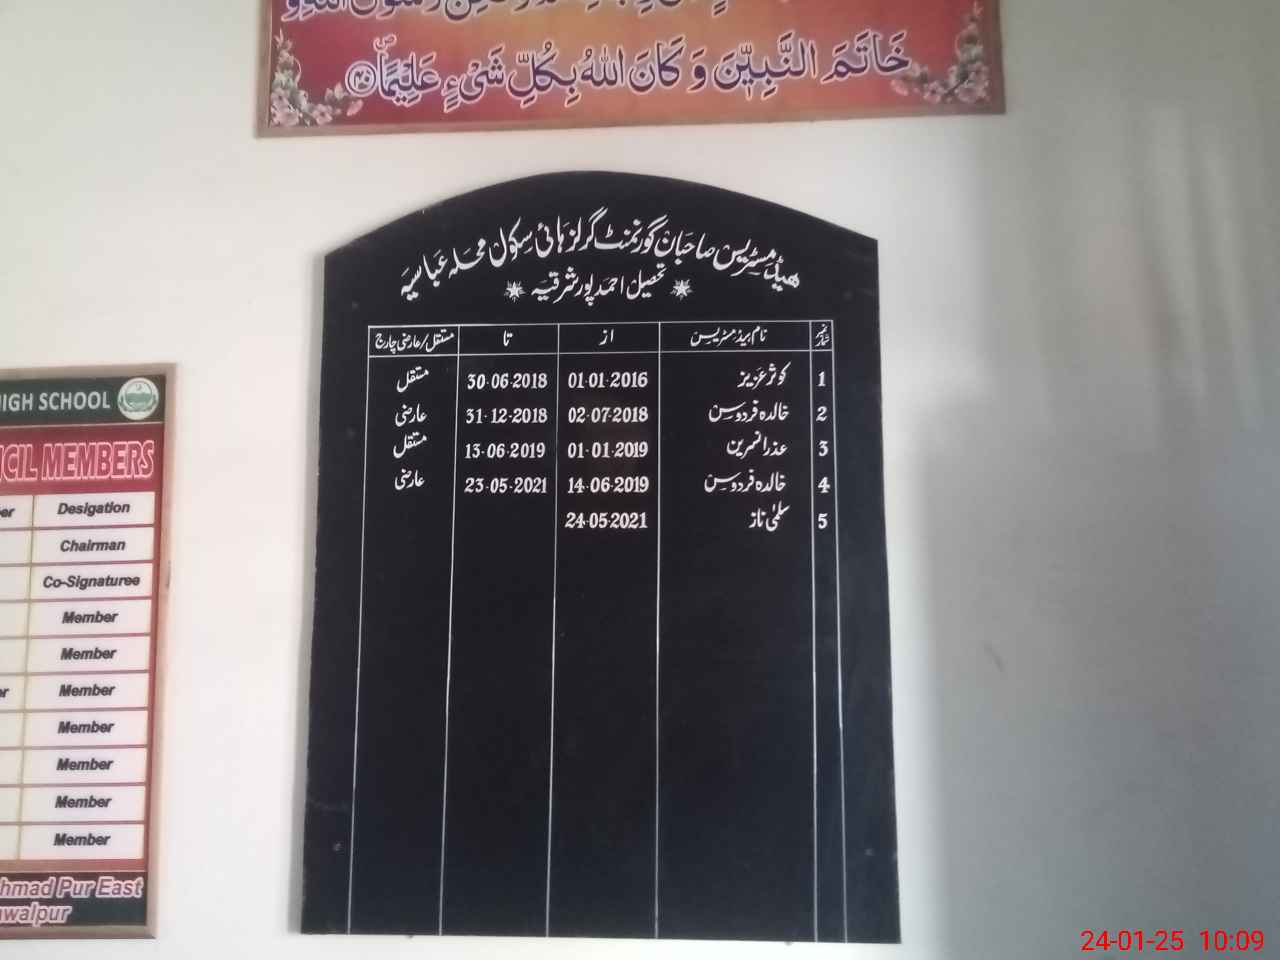 خَاتَمَ النَّبِيّٖنَ وَ كَانَ اللهُ بِكُلِّ شَیْءٍ عَلِيْمًا ﴿۴۰﴾
ھیڈ مسٹریس صاحبان گورنمنٹ گرلز ہائی سکول محلہ عباسیہ
تحصیل احمد پور شرقیہ
نمبر شمار نام ہیڈ مسٹریس از تا مستقل/عارضی چارج
1 کوثر عزیز 01-01-2016 30-06-2018 مستقل
2 خالدہ فردوس 02-07-2018 31-12-2018 عارضی
3 عذرا نسرین 01-01-2019 13-06-2019 مستقل
4 خالدہ فردوس 14-06-2019 23-05-2021 عارضی
5 سلمیٰ ناز 24-05-2021
HIGH SCHOOL
MEMBERS
Desigation
Chairman
Co-Signaturee
Member
Member
Member
Member
Member
Member
Member
Pur East
24-01-25 10:09